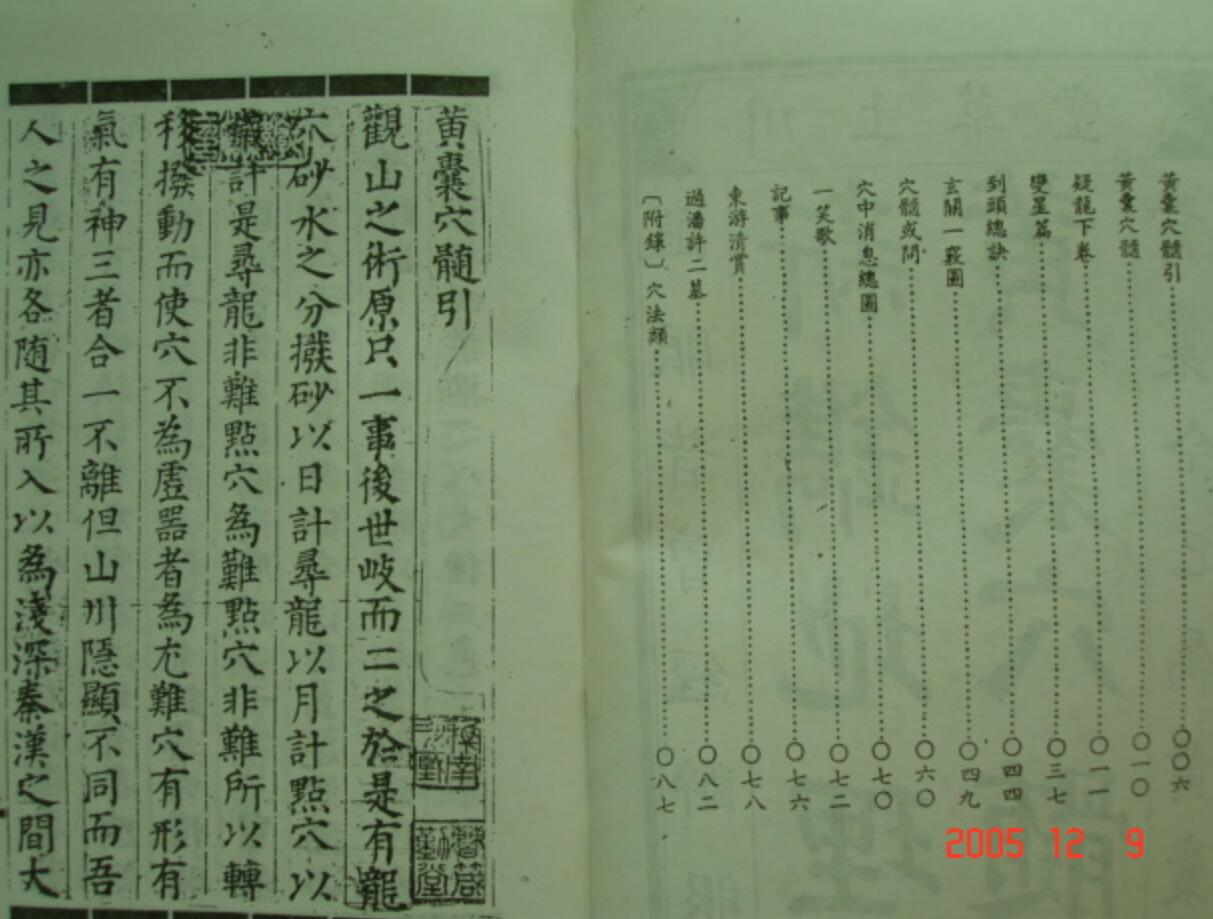 黃囊穴髓引 〇〇六
黃囊穴髓 〇一〇
疑龍下卷 〇一一
變星篇 〇三七
到頭總訣 〇四四
玄關一竅圖 〇四九
穴髓或問 〇六〇
穴中消息總圖 〇七〇
一笑歌 〇七二
記事 〇七六
東游清賞 〇七八
過潘許二墓 〇八二
〔附錄〕穴法類 〇八七
2005 12 9
黃囊穴髓引
觀山之術原只一事後世岐而二之於是有龍
穴砂水之分撥砂以日計尋龍以月計點穴以
計是尋龍非難點穴為難點穴非難所以轉
移撥動而使穴不為虛器者為尤難穴有形有
氣有神三者合一不離但山川隱顯不同而吾
人之見亦各随其所入以為淺深秦漢之間大